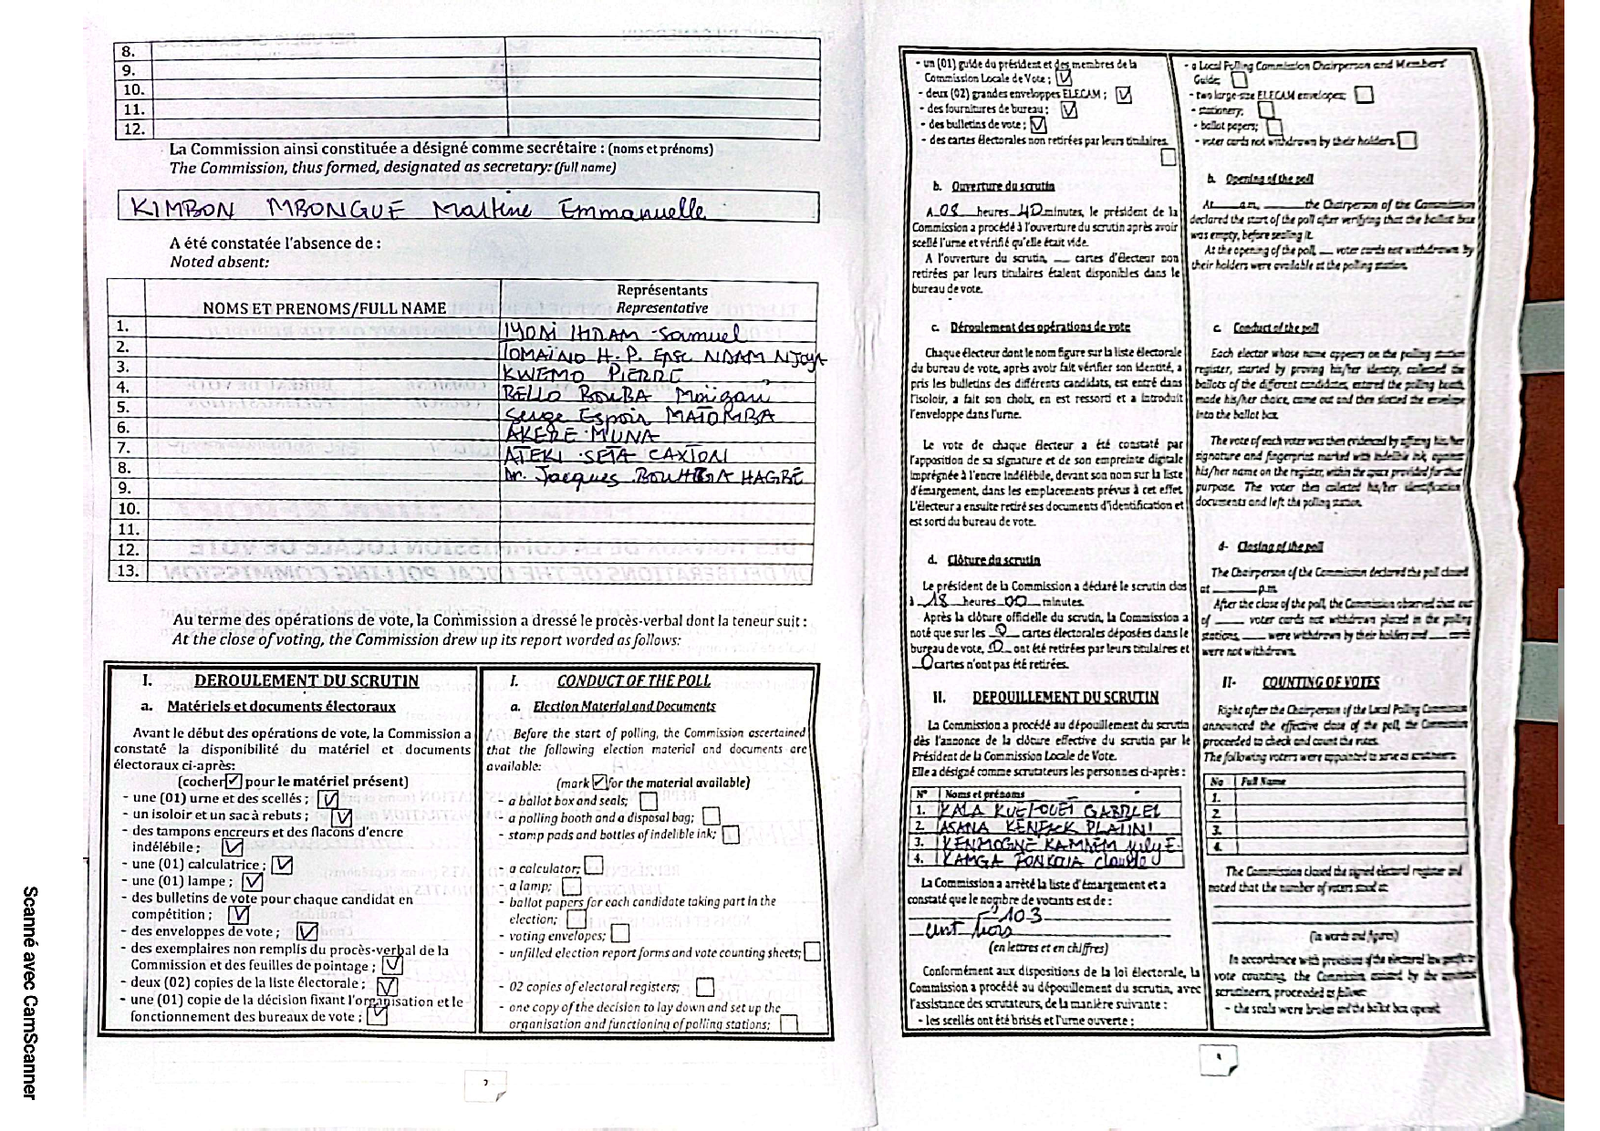 8.
9.
10.
11.
12.
La Commission ainsi constituée a désigné comme secrétaire : (noms et prénoms)
The Commission, thus formed, designated as secretary: (full name)
KIMBON MBONGUE Martine Emmanuelle
A été constatée l'absence de :
Noted absent:
NOMS ET PRENOMS/FULL NAME
Représentants
Representative
1. IYODI HIRAM Samuel
2. TOMAINO H. P. Epse NDAM NJOYA
3. KWEMO PIERRE
4. BELLO BOUBA Maïgari
5. Serge Espoir MATOMBA
6. AKERE MUNA
7. ATEKI SETA CAXTON
8. Dr. Jacques BOUHGA HAGBE
9.
10.
11.
12.
13.
Au terme des opérations de vote, la Commission a dressé le procès-verbal dont la teneur suit :
At the close of voting, the Commission drew up its report worded as follows:
I. DEROULEMENT DU SCRUTIN
a. Matériels et documents électoraux
Avant le début des opérations de vote, la Commission a
constaté la disponibilité du matériel et documents
électoraux ci-après:
(cocher ☑ pour le matériel présent)
- une (01) urne et des scellés ; ☑
- un isoloir et un sac à rebuts ; ☑
- des tampons encreurs et des flacons d'encre
indélébile ; ☑
- une (01) calculatrice ; ☑
- une (01) lampe ; ☑
- des bulletins de vote pour chaque candidat en
compétition ; ☑
- des enveloppes de vote ; ☑
- des exemplaires non remplis du procès-verbal de la
Commission et des feuilles de pointage ; ☑
- deux (02) copies de la liste électorale ; ☑
- une (01) copie de la décision fixant l'organisation et le
fonctionnement des bureaux de vote ; ☑
I. CONDUCT OF THE POLL
a. Election Material and Documents
Before the start of polling, the Commission ascertained
that the following election material and documents are
available:
(mark ☑ for the material available)
- a ballot box and seals; ☐
- a polling booth and a disposal bag; ☐
- stamp pads and bottles of indelible ink; ☐
- a calculator; ☐
- a lamp; ☐
- ballot papers for each candidate taking part in the
election; ☐
- voting envelopes; ☐
- unfilled election report forms and vote counting sheets; ☐
- 02 copies of electoral registers; ☐
- one copy of the decision to lay down and set up the
organisation and functioning of polling stations; ☐
- un (01) guide du président et des membres de la
Commission Locale de Vote ; ☑
- deux (02) grandes enveloppes ELECAM ; ☑
- des fournitures de bureau ; ☑
- des bulletins de vote ; ☑
- des cartes électorales non retirées par leurs titulaires.
☐
b. Ouverture du scrutin
A 08 heures 40 minutes, le président de la
Commission a procédé à l'ouverture du scrutin après avoir
scellé l'urne et vérifié qu'elle était vide.
A l'ouverture du scrutin, ___ cartes d'électeur non
retirées par leurs titulaires étaient disponibles dans le
bureau de vote.
c. Déroulement des opérations de vote
Chaque électeur dont le nom figure sur la liste électorale
du bureau de vote, après avoir fait vérifier son identité, a
pris les bulletins des différents candidats, est entré dans
l'isoloir, a fait son choix, en est ressorti et a introduit
l'enveloppe dans l'urne.
Le vote de chaque électeur a été constaté par
l'apposition de sa signature et de son empreinte digitale
imprégnée à l'encre indélébile, devant son nom sur la liste
d'émargement, dans les emplacements prévus à cet effet.
L'électeur a ensuite retiré ses documents d'identification et
est sorti du bureau de vote.
d. Clôture du scrutin
Le président de la Commission a déclaré le scrutin clos
à 18 heures 00 minutes.
Après la clôture officielle du scrutin, la Commission a
noté que sur les 0 cartes électorales déposées dans le
bureau de vote, 0 ont été retirées par leurs titulaires et
0 cartes n'ont pas été retirées.
II. DEPOUILLEMENT DU SCRUTIN
La Commission a procédé au dépouillement du scrutin
dès l'annonce de la clôture effective du scrutin par le
Président de la Commission Locale de Vote.
Elle a désigné comme scrutateurs les personnes ci-après :
N° Noms et prénoms
1. KALA KUETOUEI GABRIEL
2. ASANA KENFACK PLATINI
3. KENMOGNE KAMDEM July E.
4. KAMGA FONKOUA Claude J
La Commission a arrêté la liste d'émargement et a
constaté que le nombre de votants est de :
103
cent trois
(en lettres et en chiffres)
Conformément aux dispositions de la loi électorale, la
Commission a procédé au dépouillement du scrutin, avec
l'assistance des scrutateurs, de la manière suivante :
- les scellés ont été brisés et l'urne ouverte ;
- a Local Polling Commission Chairperson and Members'
Guide; ☐
- two large-size ELECAM envelopes; ☐
- stationery; ☐
- ballot papers; ☐
- voter cards not withdrawn by their holders. ☐
b. Opening of the poll
At ___ a.m, ___ the Chairperson of the Commission
declared the start of the poll after verifying that the ballot box
was empty, before sealing it.
At the opening of the poll, ___ voter cards not withdrawn by
their holders were available at the polling station.
c. Conduct of the poll
Each elector whose name appears on the polling station
register, started by proving his/her identity, collected the
ballots of the different candidates, entered the polling booth,
made his/her choice, came out and then slotted the envelope
into the ballot box.
The vote of each voter was then evidenced by affixing his/her
signature and fingerprint marked with indelible ink, against
his/her name on the register, within the space provided for that
purpose. The voter then collected his/her identification
documents and left the polling station.
d- Closing of the poll
The Chairperson of the Commission declared the poll closed
at ___ p.m.
After the close of the poll, the Commission observed that out
of ___ voter cards not withdrawn placed in the polling
stations, ___ were withdrawn by their holders and ___ cards
were not withdrawn.
II- COUNTING OF VOTES
Right after the Chairperson of the Local Polling Commission
announced the effective close of the poll, the Commission
proceeded to check and count the votes.
The following voters were appointed to serve as scrutineers:
No Full Name
1.
2.
3.
4.
The Commission closed the signed electoral register and
noted that the number of voters stood at:
(in words and figures)
In accordance with provisions of the electoral law
vote counting, the Commission, assisted by the
scrutineers, proceeded as follows:
- the seals were broken and the ballot box opened
Scanné avec CamScanner